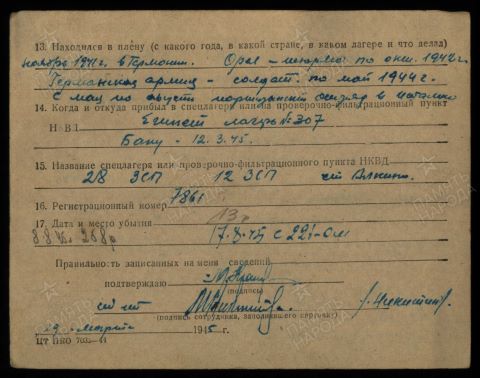 13. Находился в плену (с какого года, в какой стране, в каком лагере и что делал)
ноября 1941г. в Германии. Орел - по окт. 1942г.
Германская армия - солдат. по май 1944г.
С мая по август партизанский отряд в Италии
14. Когда и откуда прибыл в спецлагерь или на проверочно-фильтрационный пункт
НКВД Египет лагерь № 307
Баку - 12.3.45.
15. Название спецлагеря или проверочно-фильтрационного пункта НКВД
28 ЗСП 12 ЗСП ст Алкино.
16. Регистрационный номер 7861
13р
17. Дата и место убытия
268р 17.8.45 с 221-ом
Правильность записанных на меня сведений
подтверждаю
(подпись)
(подпись сотрудника, заполнявшего карточку)
29 марта 1945 г.
ЦТ НКО
ПАМЯТЬ НАРОДА